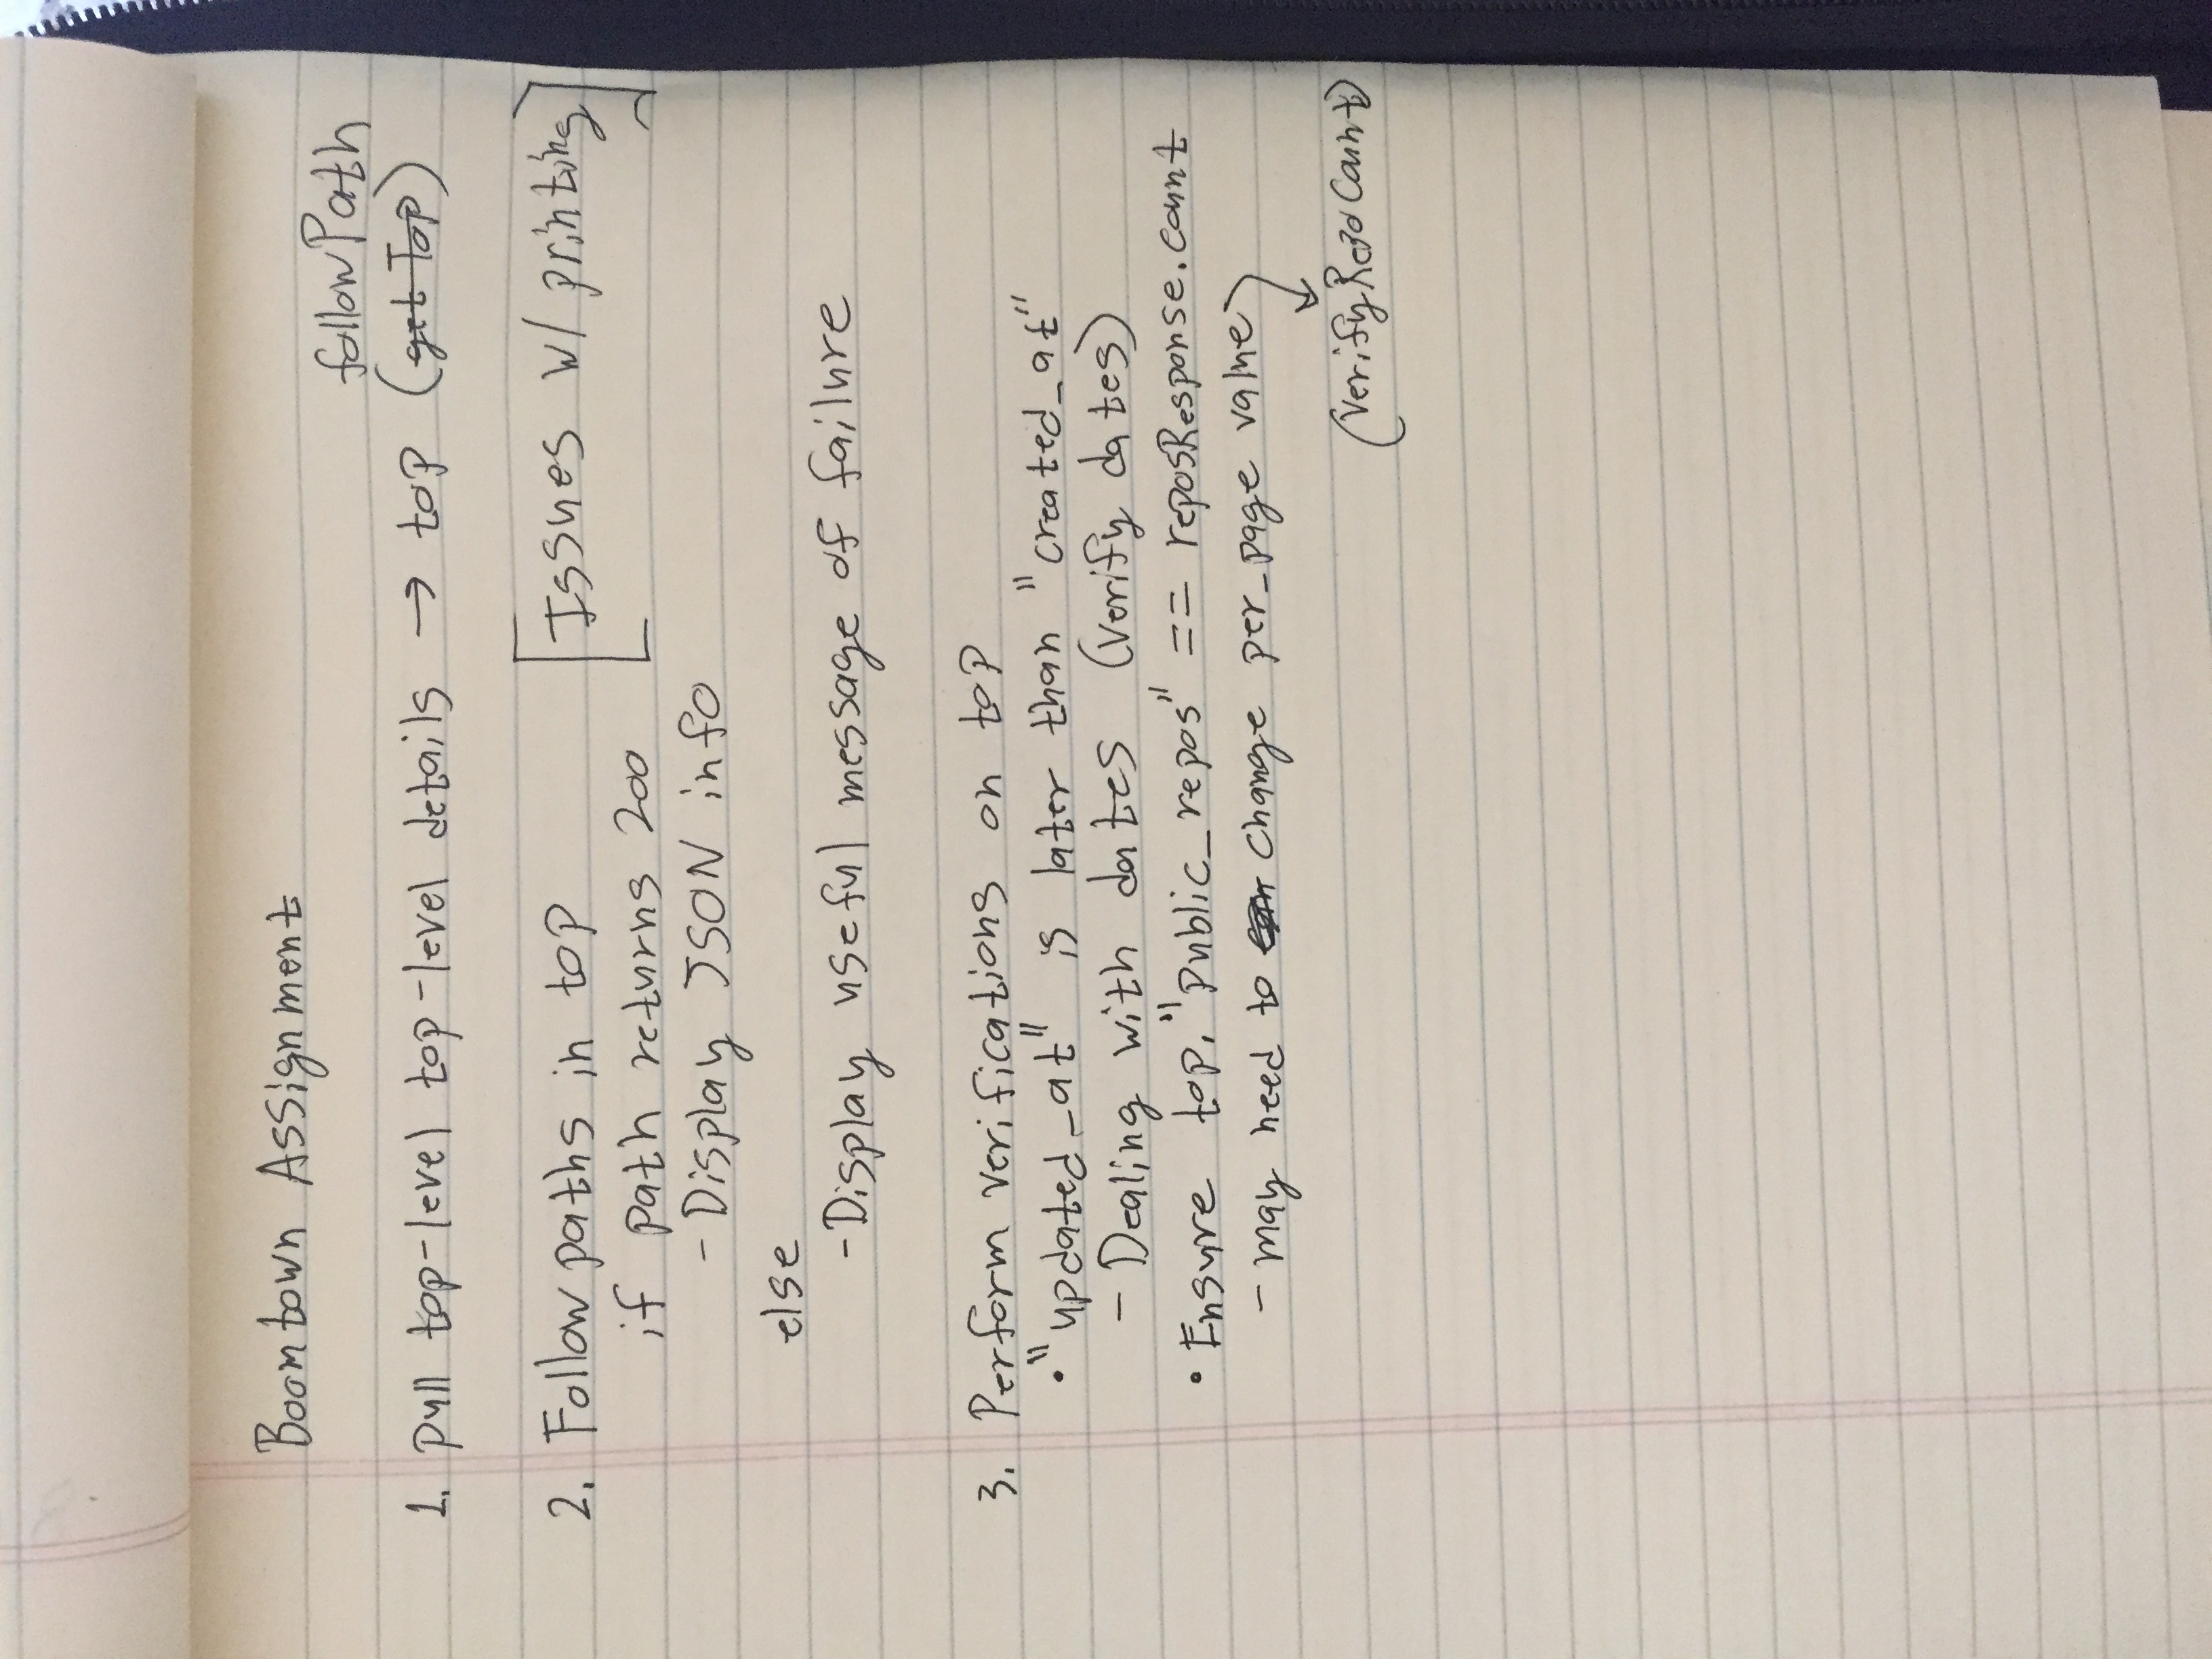 Boomtown Assignment
followPath
1. pull top-level top-level details → top (get Top)
2. Follow paths in top [Issues w/ printing]
if path returns 200
- Display JSON info
else
- Display useful message of failure
3. Perform verifications on top
• "updated_at" is later than "created_at"
- Dealing with dates (verify dates)
• Ensure top."public_repos" == reposResponse.count
- may need to change per_page value
(verifyRepoCount)